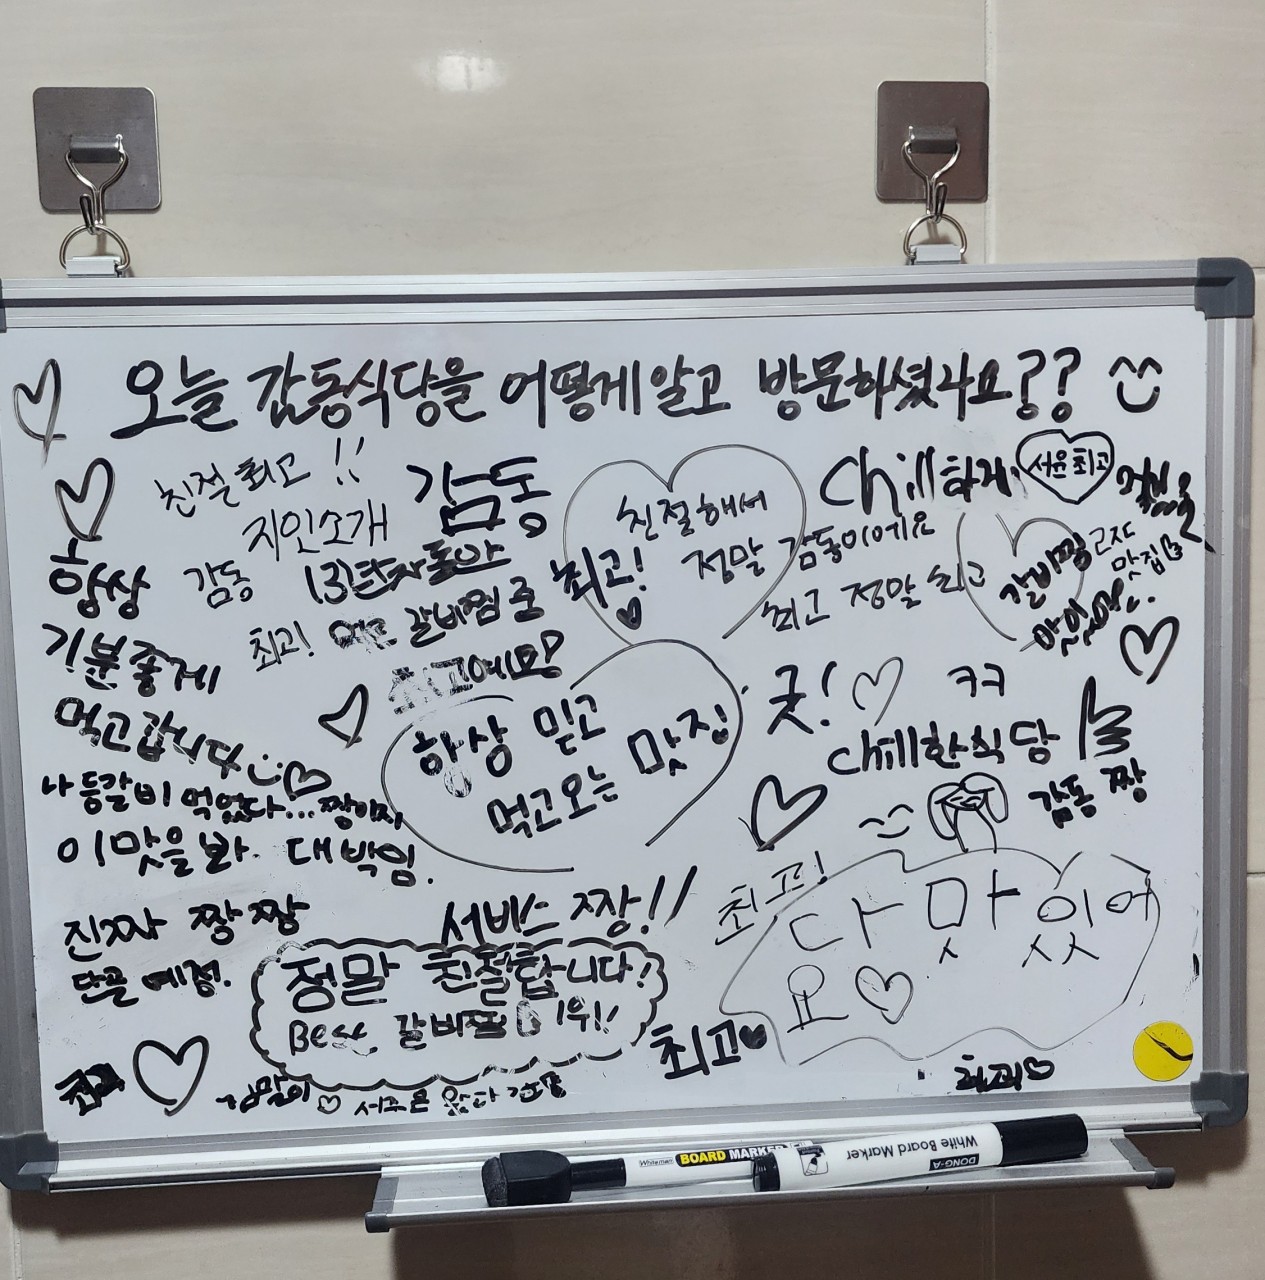 오늘 감동식당을 어떻게 알고 방문하셨나요??
친절최고 !!
지인소개
감동
친절해서
정말 감동이에요
최고 정말 최고
Chill하게
서윤최고
갈비찜
맛집
항상
기분좋게
먹고갑니다
감동
최고!
갈비찜
최고!
항상 믿고
먹고오는 맛집
굿!
ㅋㅋ
chill한식당
감동 짱
나 등갈비 먹었다...짱이지
이맛을봐. 대박임.
진짜 짱짱
단골 예정.
서비스 짱!!
정말 친절합니다!
Best 갈비찜 1위!
최고!
다 맛있어
요
최고
최고
Whiteman BOARD MARKER
DONG-A White Board Marker